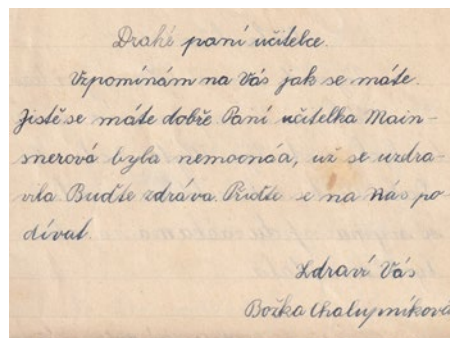 Drahé paní učitelce.
Vzpomínám na Vás jak se máte.
Jistě se máte dobře. Paní učitelka Main-
snerová byla nemocnáa, už se uzdra-
vila Buďte zdráva. Přiďte se na nás po-
dívat.
Zdraví Vás
Božka Chalupníková